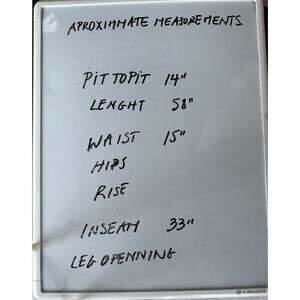 APROXIMMATE MEASUREMENTS
PIT TO PIT 14"
LENGHT 58"
WAIST 15"
HIPS
RISE
INSEAM 33"
LEG OPENNING
U BRANDS